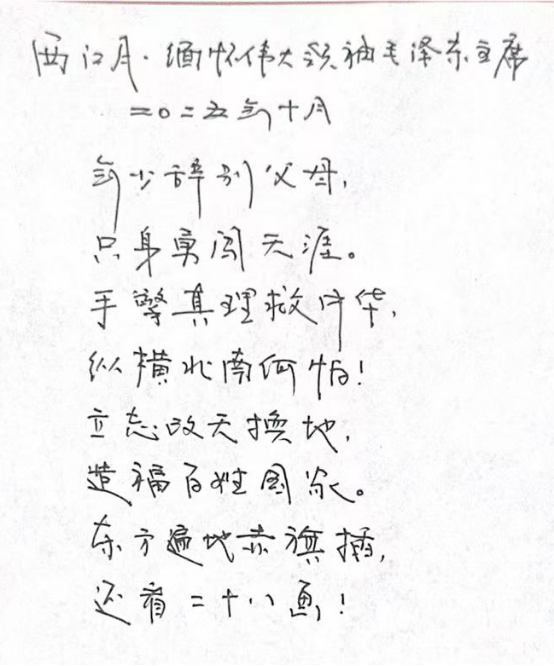 西江月·缅怀伟大领袖毛泽东主席
二〇二五年十月
年少辞别父母,
只身勇闯天涯。
手擎真理救中华,
纵横北南何怕!
立志改天换地,
造福百姓国家。
东方遍地赤旗插,
还看二十八画!